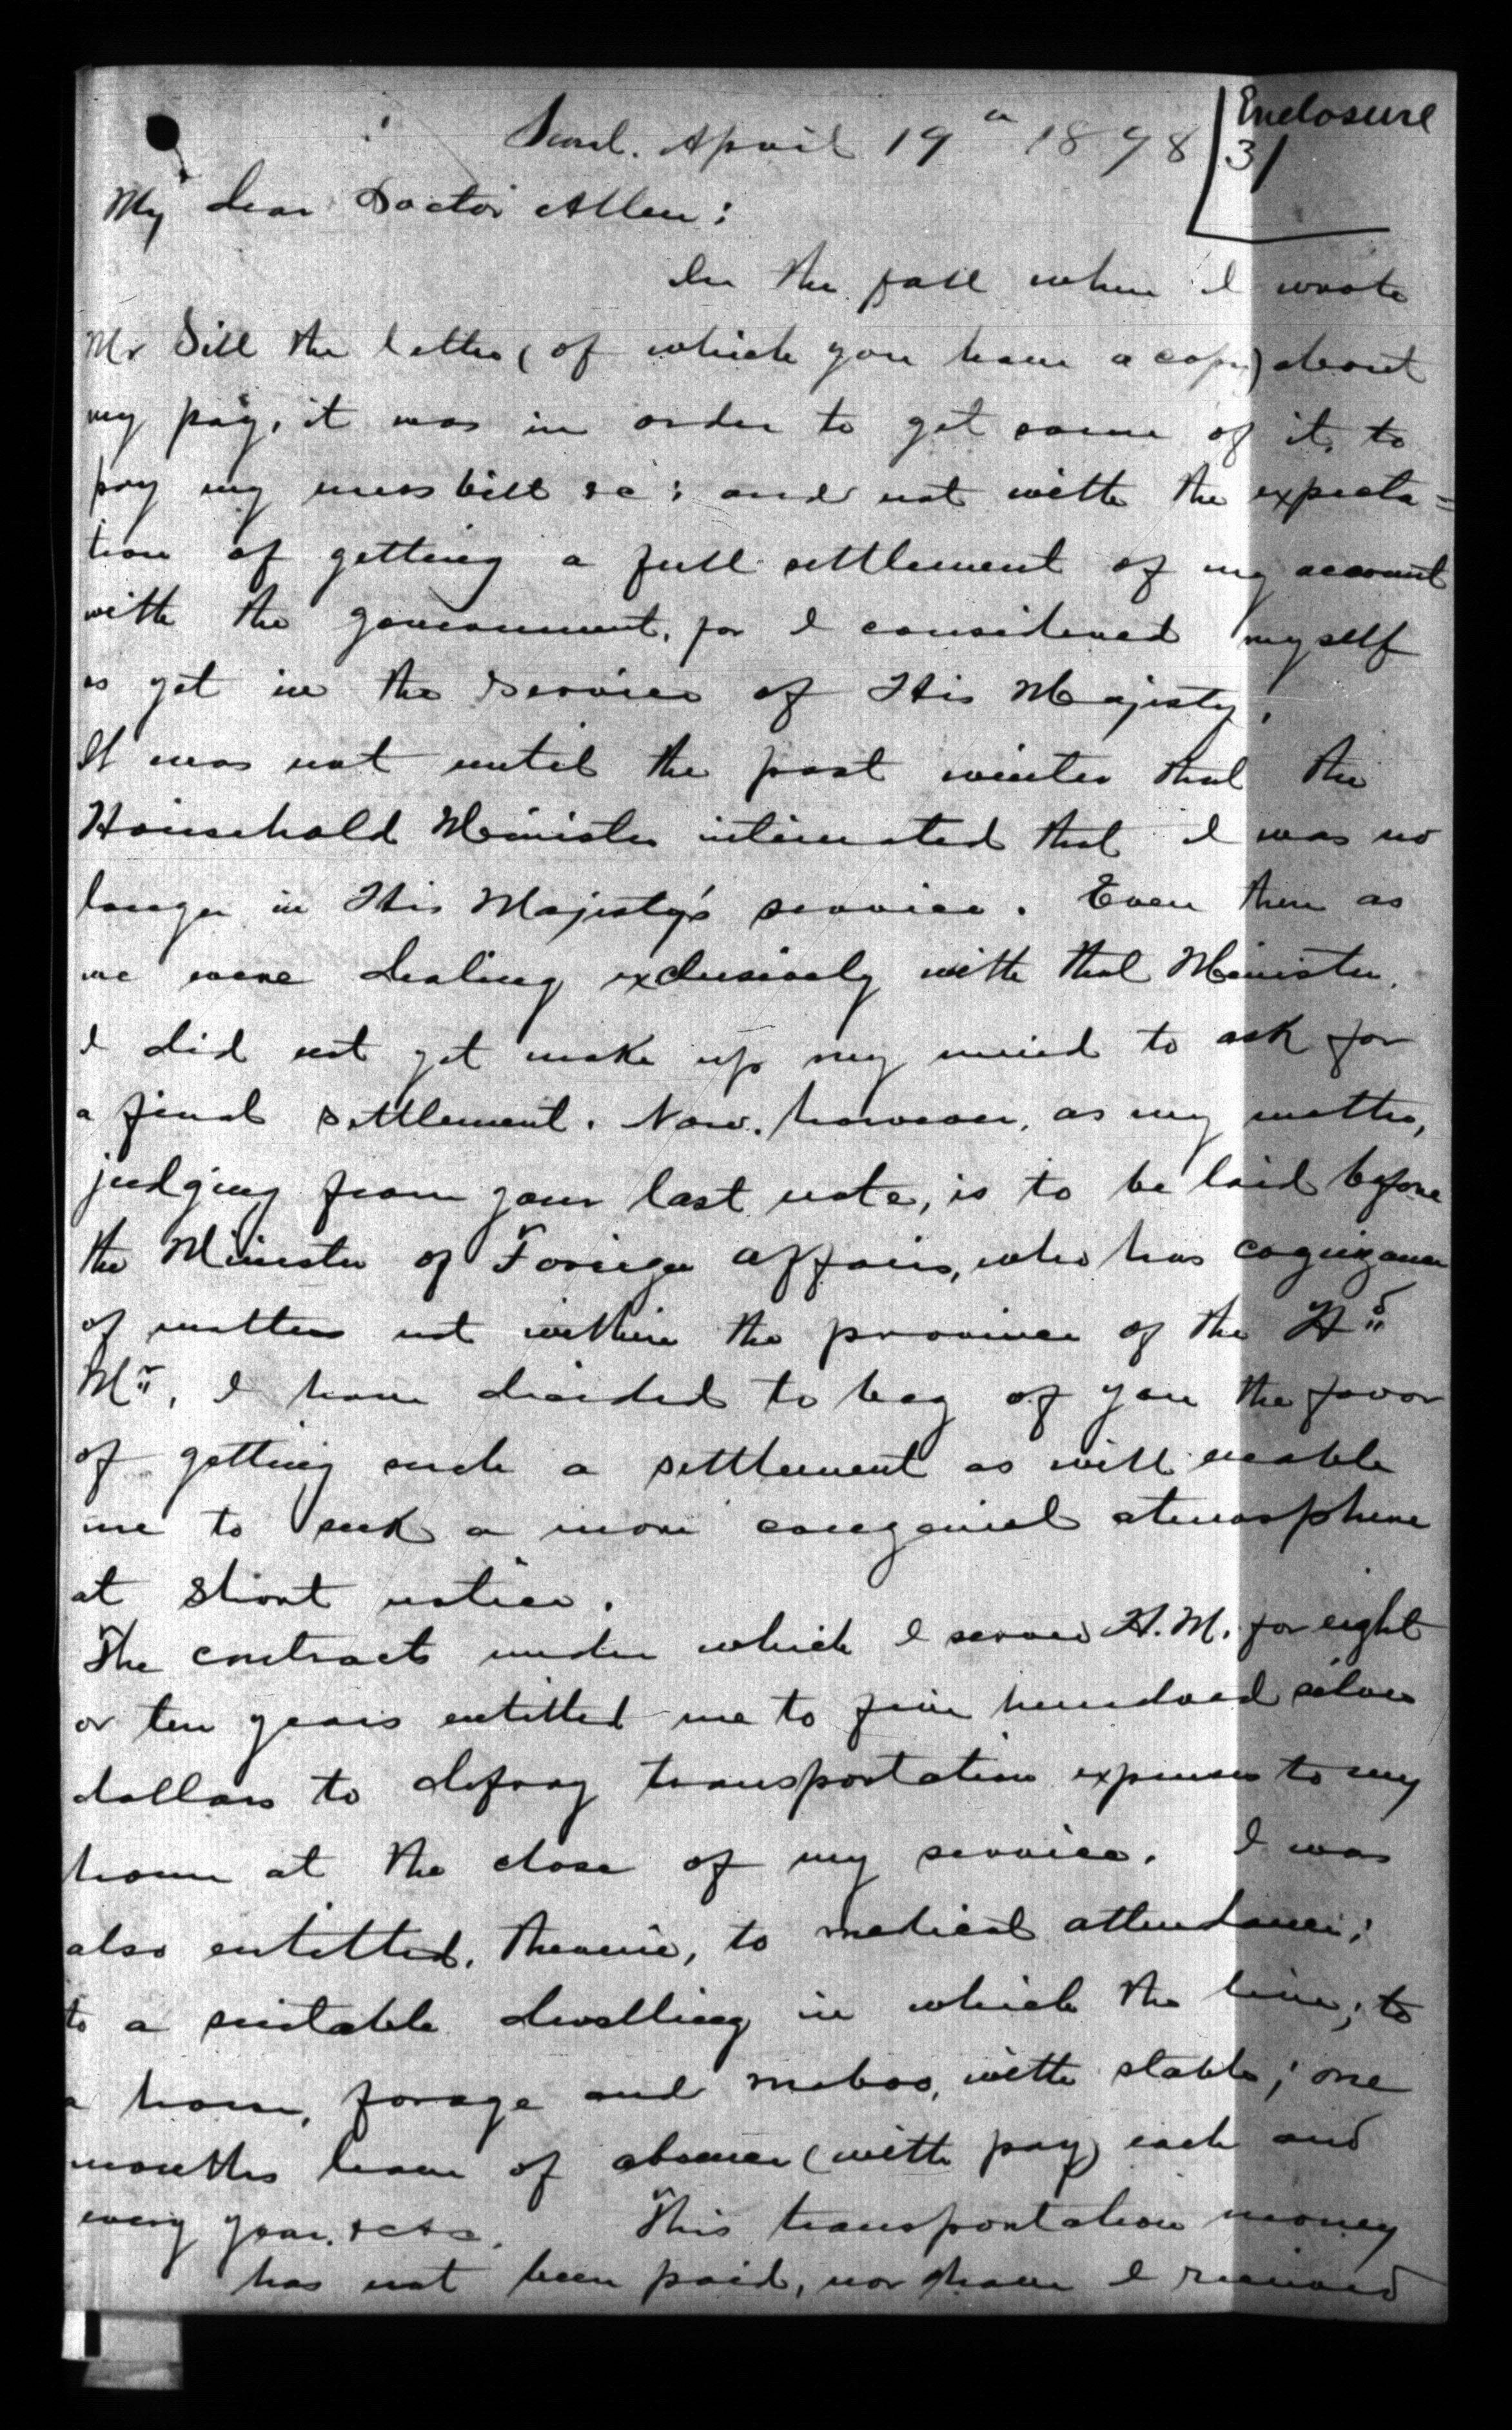 Enclosure
3/
Seoul. April 19" 1898
My dear Doctor Allen:
In the fall when I wrote
Mr Sill the letter (of which you have a copy) about
my pay, it was in order to get some of it, to
pay my mess bill &c: and not with the expecta=
tion of getting a full settlement of my account
with the government, for I considered myself
as yet in the service of His Majesty.
It was not until the past winter that the
Household Minister intimated that I was no
longer in His Majesty's service. Even then as
we were dealing exclusively with that Minister,
I did not yet make up my mind to ask for
a final settlement. Now, however, as my matter,
judging from your last note, is to be laid before
the Minister of Foreign Affairs, who has cognizance
of matters not within the province of the Hd
Mr, I have decided to beg of you the favor
of getting such a settlement as will enable
me to seek a more congenial atmosphere
at short notice.
The contract under which I served H.M. for eight
or ten years entitled me to five hundred silver
dollars to defray transportation expenses to my
home at the close of my service. I was
also entitled, therein, to medical attendance;
to a suitable dwelling in which the live; to
a horse, forage and maboo, with stable; one
months leave of absence (with pay) each and
every year, &c&c. This transportation money
has not been paid, nor have I received